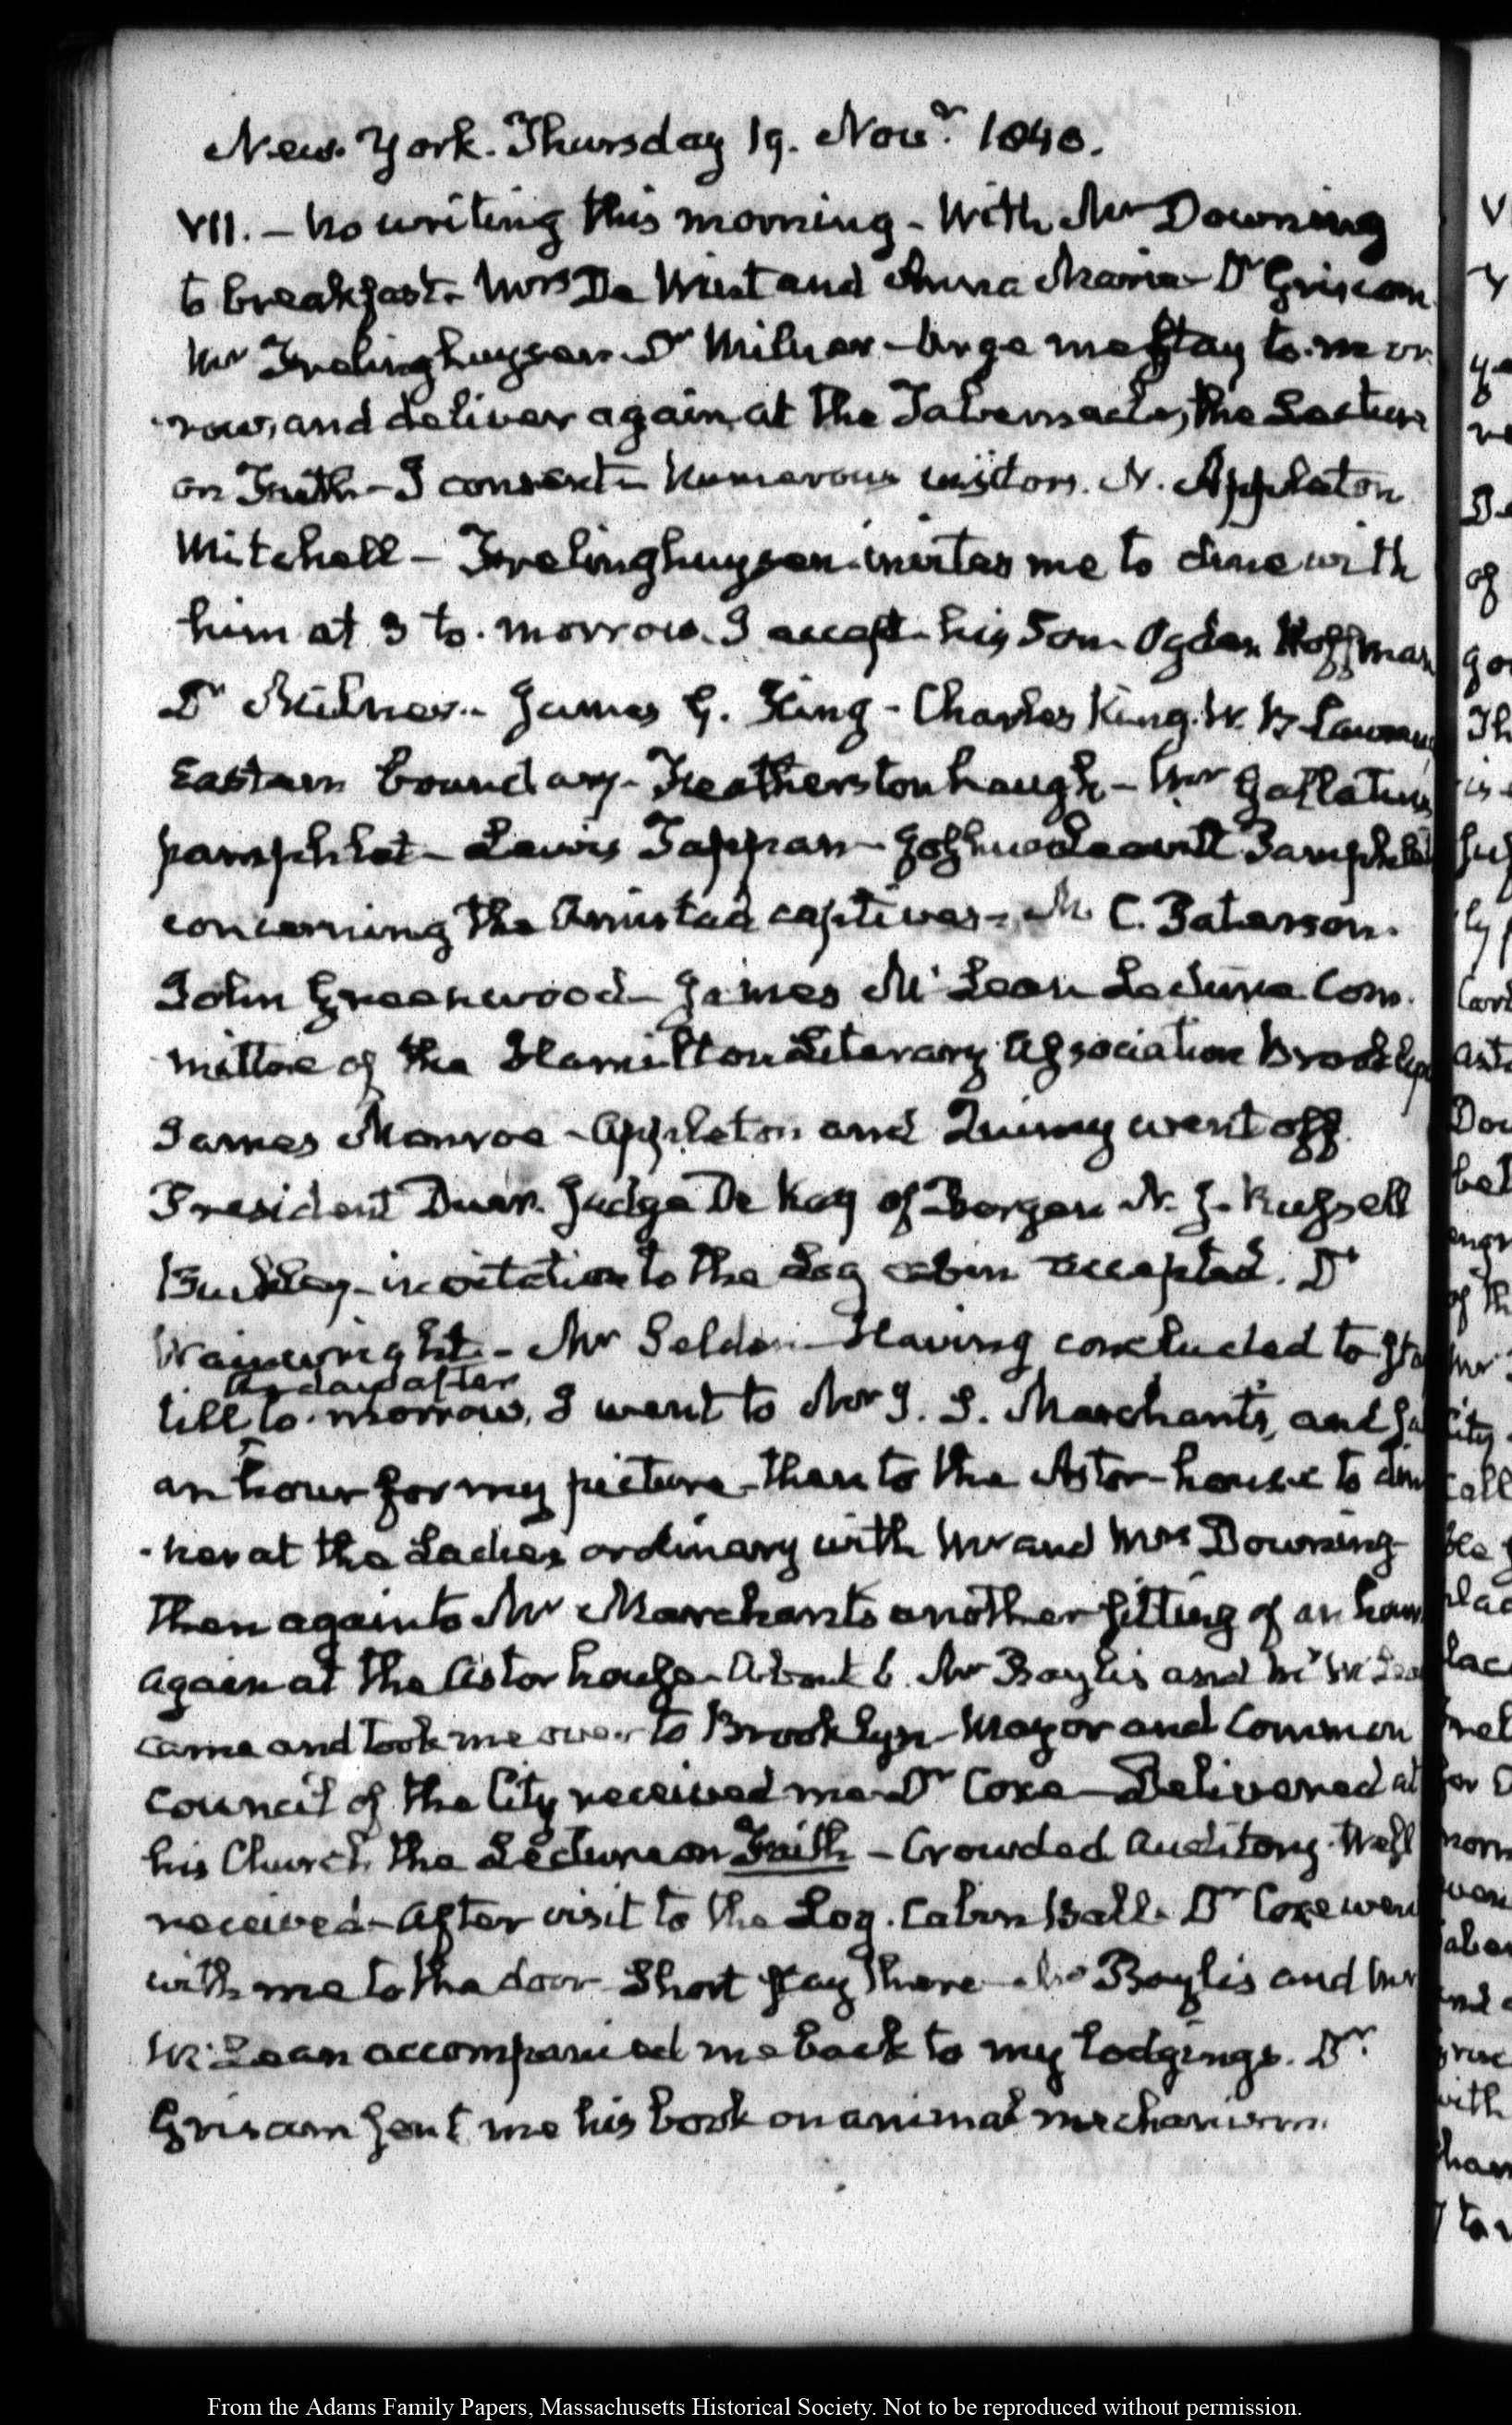 New-York. Thursday 19. Novr. 1840.
VII. — No writing this morning - With Mr Downing
to breakfast - Mrs De Wint and Anna Maria - Dr Griscom
Mr Frelinghuysen Dr Milnor - Urge me stay to-mor-
-row, and deliver again at the Tabernacle, the Lecture
on Faith - I consent - Numerous visitors. N. Appleton
Mitchell - Frelinghuysen invites me to dine with
him at 3 to-morrow. I accept - his Son. Ogden Hoffman
Dr Milnor - James G. King - Charles King. W. B. Lawrence
Eastern boundary - Featherstonhaugh - Mr Gallatin's
pamphlet - Lewis Tappan - Joshua Leavitt Pamphlet
concerning the Amistad captives - M C. Paterson.
John Greenwood - James McLean Lecture Com-
mittee of the Hamilton Literary Association Brooklyn
James Monroe - Appleton and Quincy went off
President Duer. Judge De Kay of Bergen N. J. Russell
invitation to the Log cabin accepted. Dr
Wainwright - Mr Selden - Having concluded to stay
and day after
till to-morrow, I went to Mr Marchant's, and sat
an hour for my picture - then to the Astor-house to din-
-ner at the Ladies ordinary with Mr and Mrs Downing -
Then again to Mr Marchant's another sitting of an hour
again at the Astor house - About 6. Mr Baylis and Mr McLean
came and took me over to Brooklyn - Mayor and Common
Council of the City received me - Dr Coxe - Delivered at
his Church the Lecture on Faith - Crowded auditory. Well
received - After visit to the Log-Cabin Ball. Dr Coxe went
with me to the door - Short stay there - Mr Baylis and Mr
McLean accompanied me back to my lodgings. Dr.
Griscom sent me his book on animal mechanism.
From the Adams Family Papers, Massachusetts Historical Society. Not to be reproduced without permission.